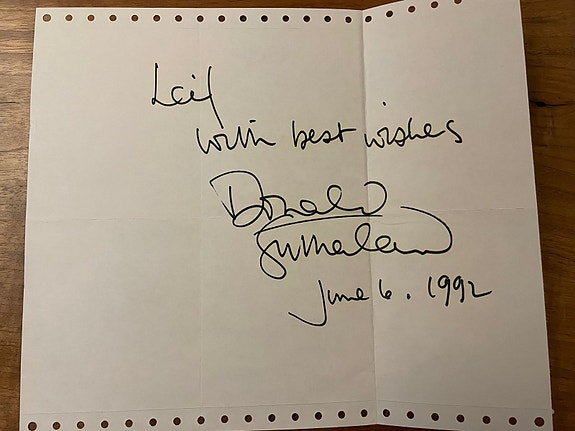 Leif
with best wishes
Donald
Sutherland
June 6. 1992